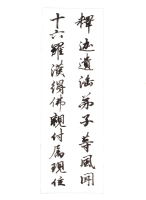 釋迦遺法弟子等風聞
十六羅漢得佛親付屬現住